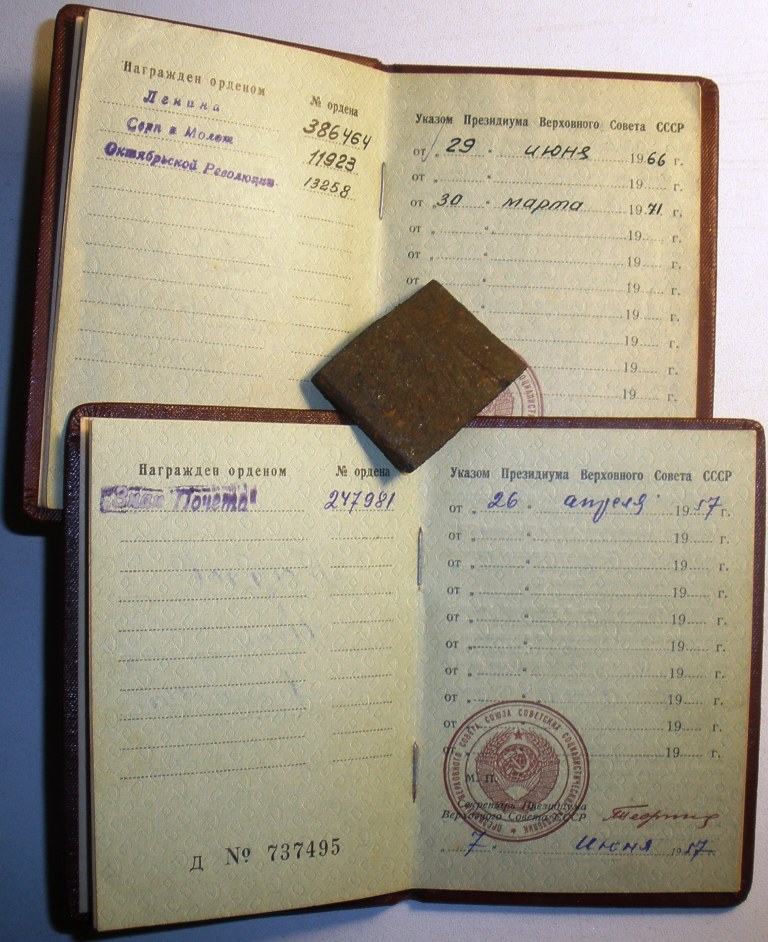 Награжден орденом № ордена
Ленина 386464
Серп и Молот 11923
Октябрьской Революции 13258
Указом Президиума Верховного Совета СССР
от „ 29 " июня 1966 г.
от „ " 19 г.
от „ 30 " марта 1971 г.
от „ " 19 г.
от „ " 19 г.
от „ 19 г.
" 19 г.
19 г.
19 г.
19
Награжден орденом № ордена
Знак Почета 247981
Указом Президиума Верховного Совета СССР
от „ 26 " апреля 1957 г.
от „ " 19 г.
от „ " 19 г.
от „ " 19 г.
от „ " 19 г.
от „ " 19 г.
от „ " 19 г.
от „ " 19 г.
от 19 г.
от 19 г.
ВЕРХОВНОГО СОВЕТА СОЮЗА СОВЕТСКИХ СОЦИАЛИСТИЧЕСКИХ
М. П.
Секретарь Президиума
Верховного Совета СССР
„ 7. " июня 1957 г.
Д № 737495